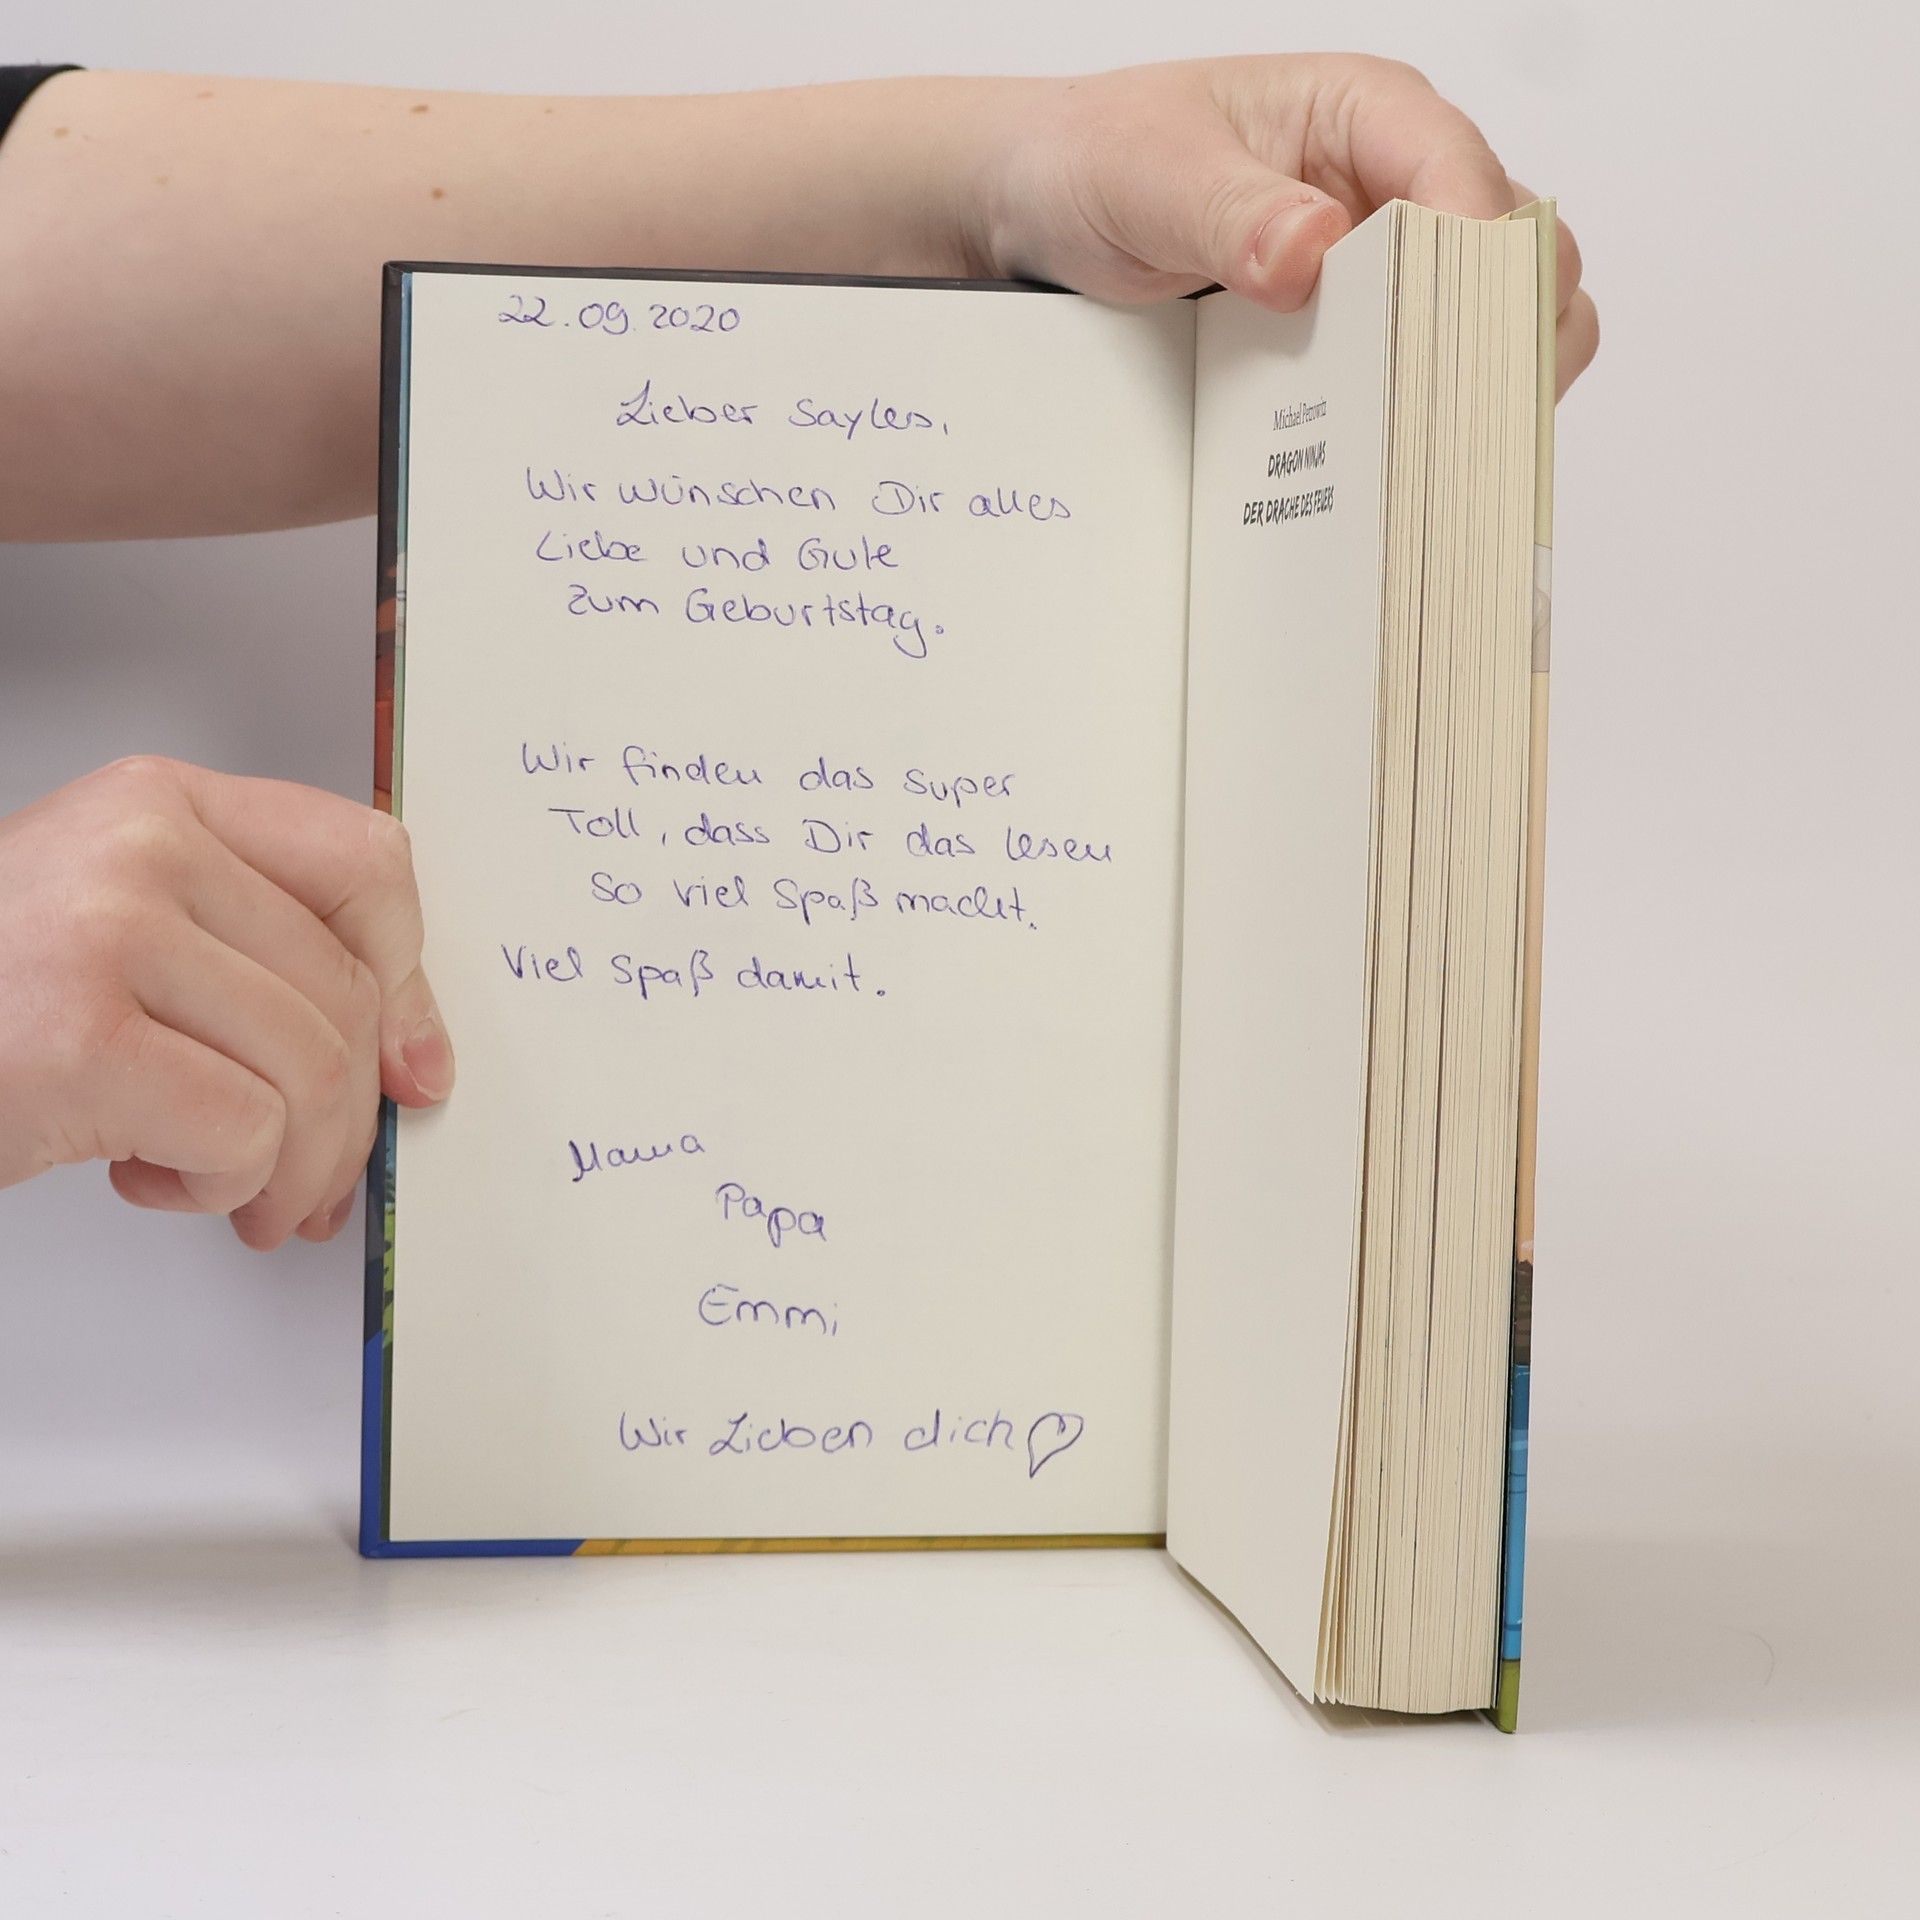 22.09.2020
Lieber Sayles,
Wir wünschen Dir alles
Liebe und Gute
zum Geburtstag.
Wir finden das super
Toll, dass Dir das lesen
so viel Spaß macht.
Viel Spaß damit.
Mama
Papa
Emmi
Wir Lieben dich
Michael Petrowitz
DRAGON NINJAS
DER DRACHE DES FEUERS